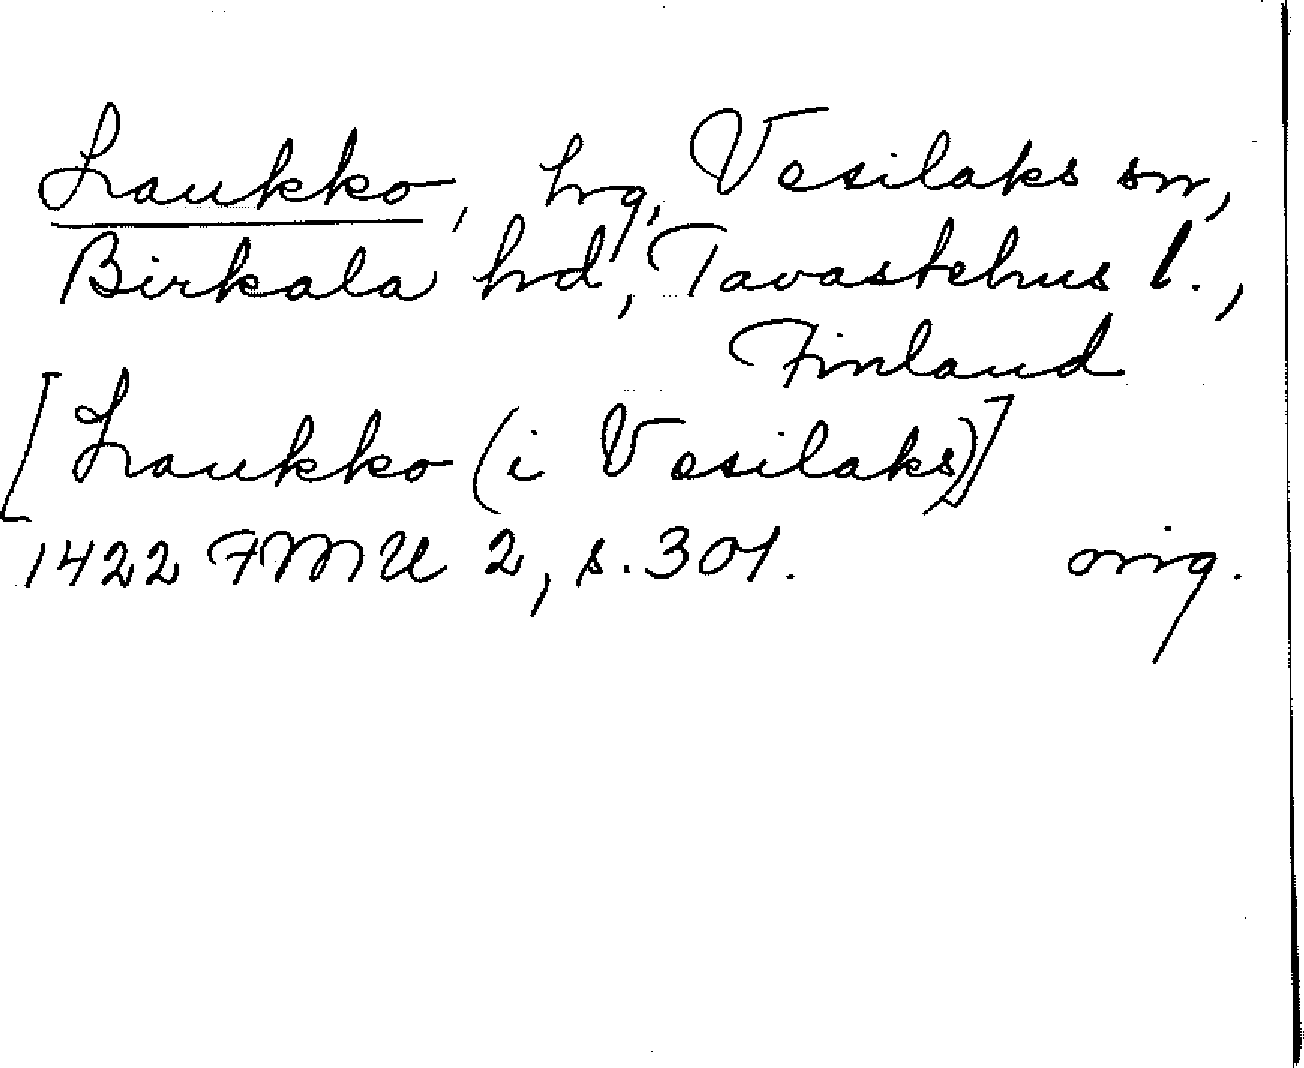 Laukko, hrg, Vesilaks sn,
Birkala hd, Tavastehus l.,
Finland
[Laukko (i Vesilaks)]
1422 FMU 2, s. 301. orig.